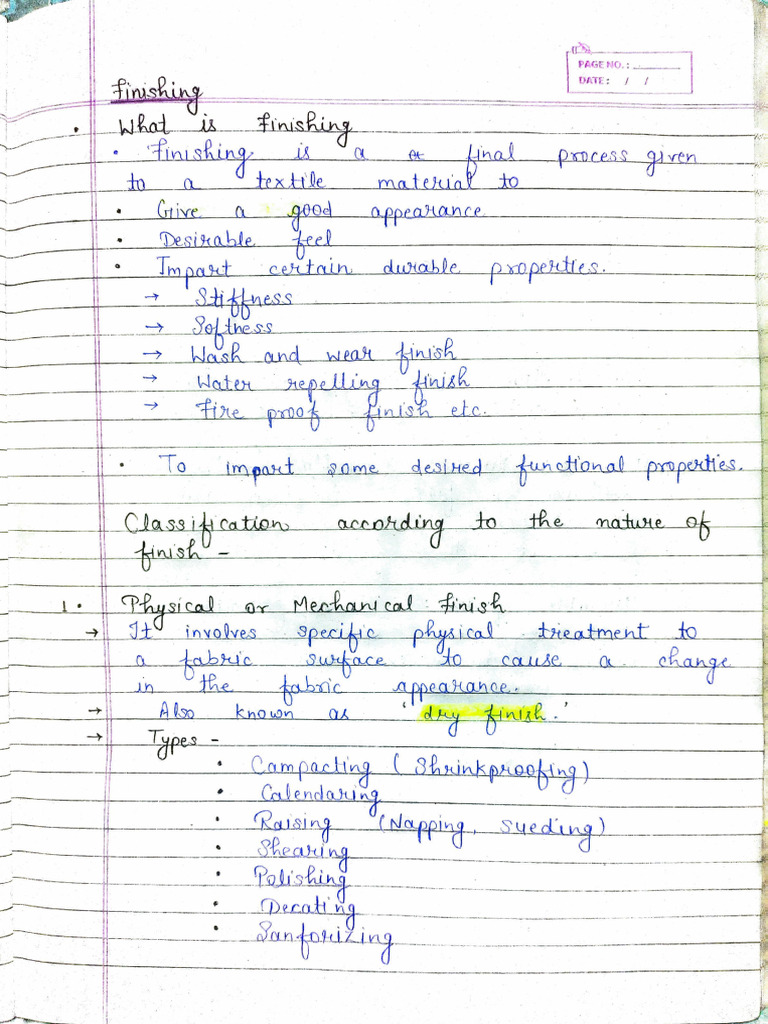 PAGE NO.:
DATE: / /
Finishing
• What is Finishing
• Finishing is a final process given
to a textile material to
• Give a good appearance
• Desirable feel
• Impart certain durable properties.
→ Stiffness
→ Softness
→ Wash and wear finish
→ Water repelling finish
→ Fire proof finish etc.
• To impart some desired functional properties.
Classification according to the nature of
finish -
1. Physical or Mechanical finish
→ It involves specific physical treatment to
a fabric surface to cause a change
in the fabric appearance.
→ Also known as 'dry finish.'
→ Types -
• Campacting (Shrinkproofing)
• Calendaring
• Raising (Napping, Sueding)
• Shearing
• Polishing
• Decating
• Sanforizing